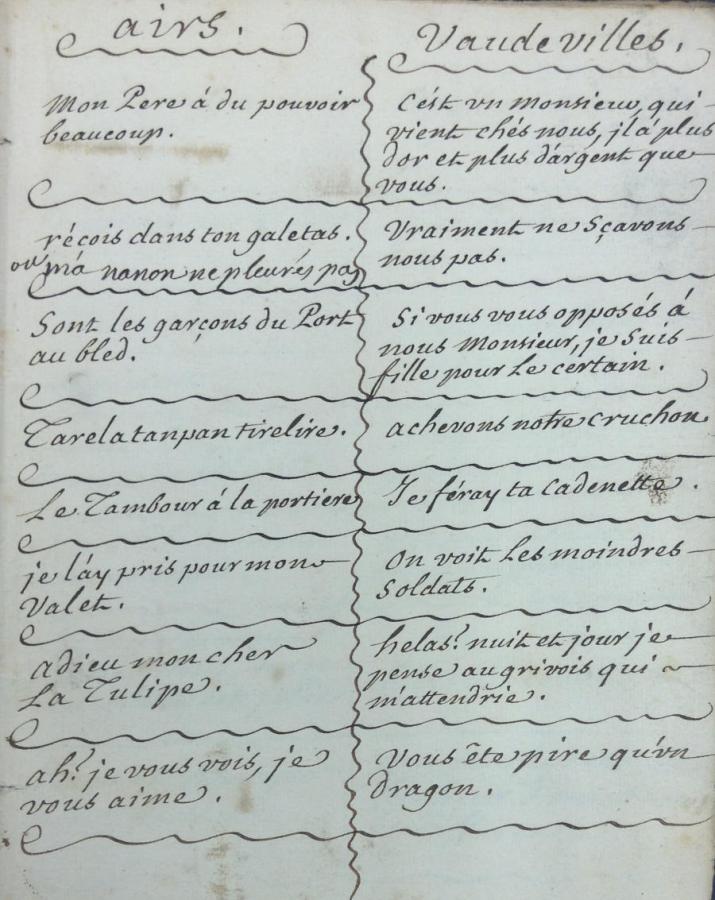 airs.
Vaudevilles.
Mon Pere á du pouvoir
beaucoup.
C'ést vn monsieur, qui
vient chés nous, jl á plus
d'or et plus d'argent que
vous.
récois dans ton galetas.
ou ma nanon ne pleurés pas
Vraiment ne Sçavons
nous pas.
Sont les garçons du Port
au bled.
Si vous vous opposés á
nous Monsieur, je Suis
fille pour Le certain.
Tarelatanpan tirelire.
achevons notre cruchon.
Le Tambour á la portiere
Je féray ta Cadenette.
je l'áy pris pour mon
Valet.
On voit Les moindres
Soldats.
adieu mon cher
La Tulipe.
helas! nuit et jour je
pense au grivois qui
m'attendrie.
ah! je vous vois, je
vous aime.
Vous ête pire qu'vn
dragon.